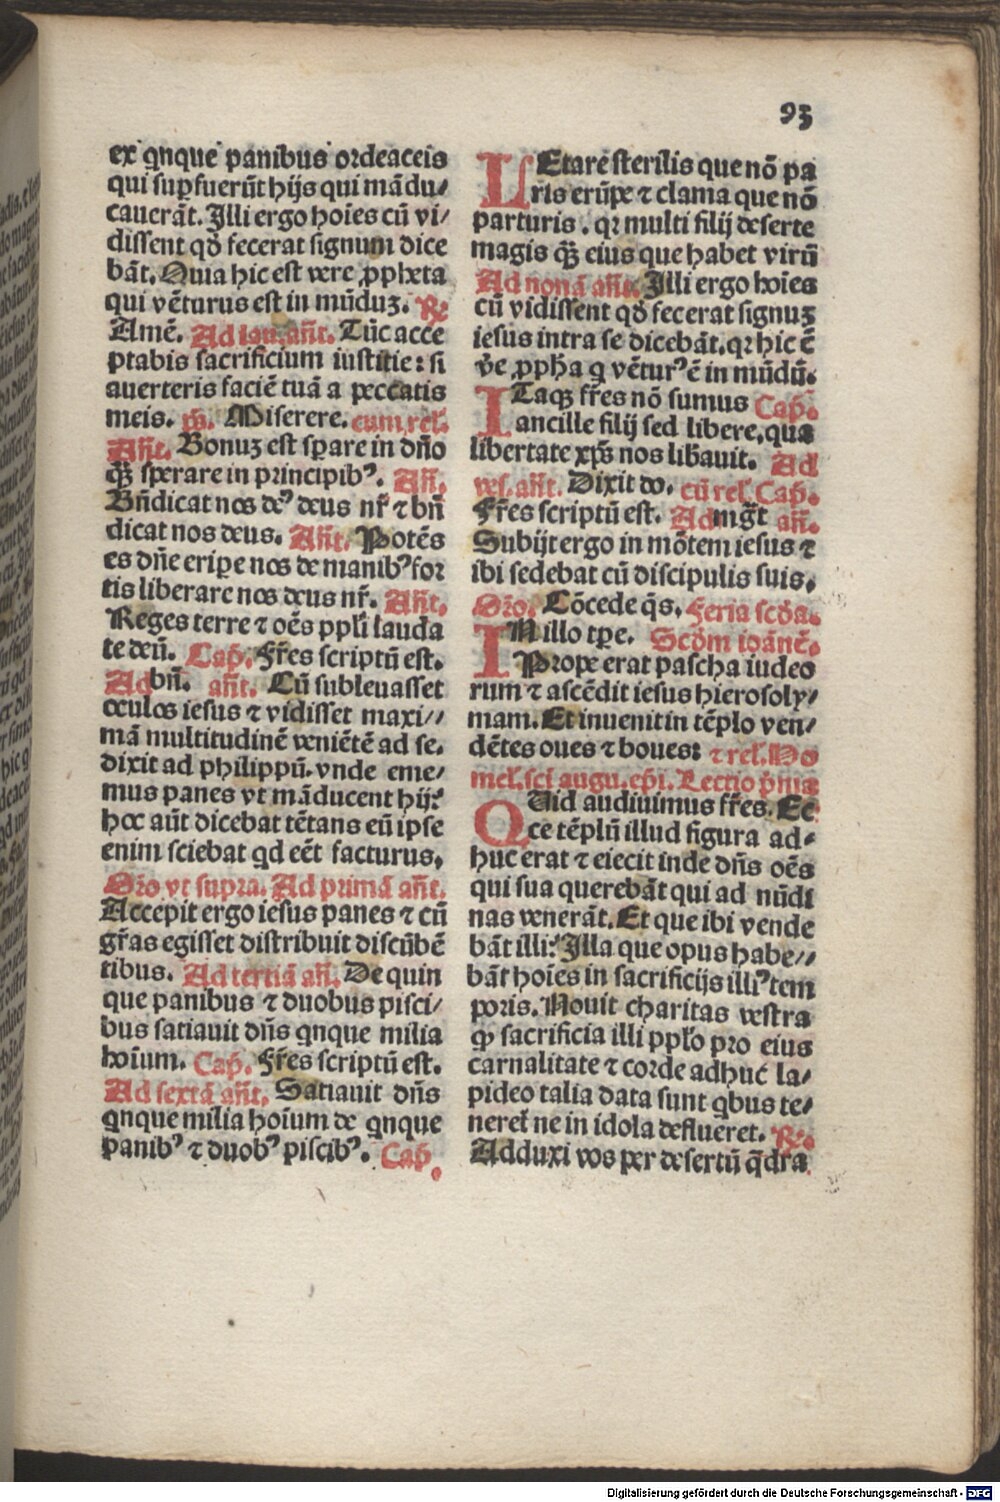 93
ex qnque panibus ordeaceis
qui suꝑfuerũt hijs qui mãdu/
cauerãt. Illi ergo hoīes cũ vi/
dissent qđ fecerat signum dice
bãt. Quia hic est vere ꝓpheta
qui vẽturus est in mũduz. ℟
Amẽ. Ad lau. añt. Tũc acce
ptabis sacrificium iustitie: si
auerteris faciẽ tuã a peccatis
meis. p̃s. Miserere. cum rel̕.
Añt. Bonuz est sꝑare in dño
qꝫ̃ sperare in principibꝰ. Añ.
Bñdicat nos deꝰ deus nr̃ ⁊ bñ
dicat nos deus. Añt. Potẽs
es dñe eripe nos de manibꝰ for
tis liberare nos deus nr̃. Añt.
Reges terre ⁊ oẽs ppl̕i lauda
te deũ. Cap̃. Fr̃es scriptũ est.
Ad bñ. añt. Cũ subleuasset
oculos iesus ⁊ vidisset maxi//
mã multitudinẽ veniẽtẽ ad se.
dixit ad philippũ. vnde eme/
mus panes vt mãducent hij:
hoc aũt dicebat tẽtans eũ ipse
enim sciebat qd eẽt facturus.
Oro vt supra. Ad primã añt.
Accepit ergo iesus panes ⁊ cũ
gr̃as egisset distribuit discũbẽ
tibus. Ad tertiã añ. De quin
que panibus ⁊ duobus pisci/
bus satiauit dñs qnque milia
hoīum. Cap̃. Fr̃es scriptũ est.
Ad sextã añt. Satiauit dñs
qnque milia hoīum de qnque
panibꝰ ⁊ duobꝰ piscibꝰ. Cap̃.
LEtare sterilis que nõ pa
ris erũpe ⁊ clama que nõ
parturis. qꝛ multi filij deserte
magis qꝫ̃ eius que habet virũ
Ad nonã añt. Illi ergo hoīes
cũ vidissent qđ fecerat signuz
iesus intra se dicebãt. qꝛ hic ẽ
v̾e ꝓpħa q vẽturꝰ ẽ in mũdũ.
ITaqꝫ fr̃es nõ sumus Cap̃.
ancille filij sed libere, qua
libertate xp̃s nos lib̾auit. Ad
ves. añt. Dixit do. cũ rel̕. Cap̃.
Fr̃es scriptũ est. Ad mgt̃ añ.
Subijt ergo in mõtem iesus ⁊
ibi sedebat cũ discipulis suis.
Oro. Cõcede q̃s. Feria scđa.
IN illo tꝑe. Scđm ioãnẽ.
Prope erat pascha iudeo
rum ⁊ ascẽdit iesus hierosoly/
mam. Et inuenit in tẽplo ven/
dẽtes oues ⁊ boues: ⁊ rel̕. Ho
mel̕. sci augu. ep̃i. Lectio p̃ma
QUid audiuimus fr̃es. Ec
ce tẽplũ illud figura ad-
huc erat ⁊ eiecit inde dñs oẽs
qui sua querebãt qui ad nũdi
nas venerãt. Et que ibi vende
bãt illi: Illa que opus habe//
bãt hoīes in sacrificijs illiꝰ tem
poris. Nouit charitas vestra
ꝙ sacrificia illi ppl̕o pro eius
carnalitate ⁊ corde adhuc la/
pideo talia data sunt qbus te/
neret̃ ne in idola deflueret. ℟.
Adduxi vos per desertũ q̃dra
Digitalisierung gefördert durch die Deutsche Forschungsgemeinschaft - DFG